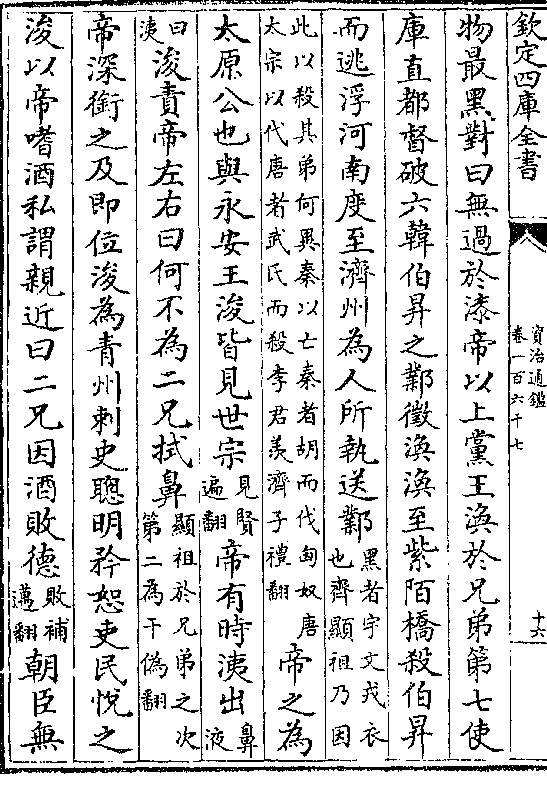 欽定四庫全書
資治通鑑
卷一百六十七
十六
物最黑對曰無過於漆帝以上黨王渙於兄弟第七使
庫直都督破六韓伯昇之鄴徵渙渙至紫陌橋殺伯昇
而逃浮河南度至濟州為人所執送鄴黑者宇文戎衣也齊顯祖乃因
此以殺其弟何異秦以亡秦者胡而伐匈奴唐太宗以代唐者武氏而殺李君羨濟子禮翻帝之為
太原公也與永安王浚皆見世宗見賢遍翻帝有時洟出鼻液
曰洟浚責帝左右曰何不為二兄拭鼻顯祖於兄弟之次第二為于偽翻
帝深銜之及即位浚為青州刺史聰明矜恕吏民悅之
浚以帝嗜酒私謂親近曰二兄因酒敗德敗補邁翻朝臣無